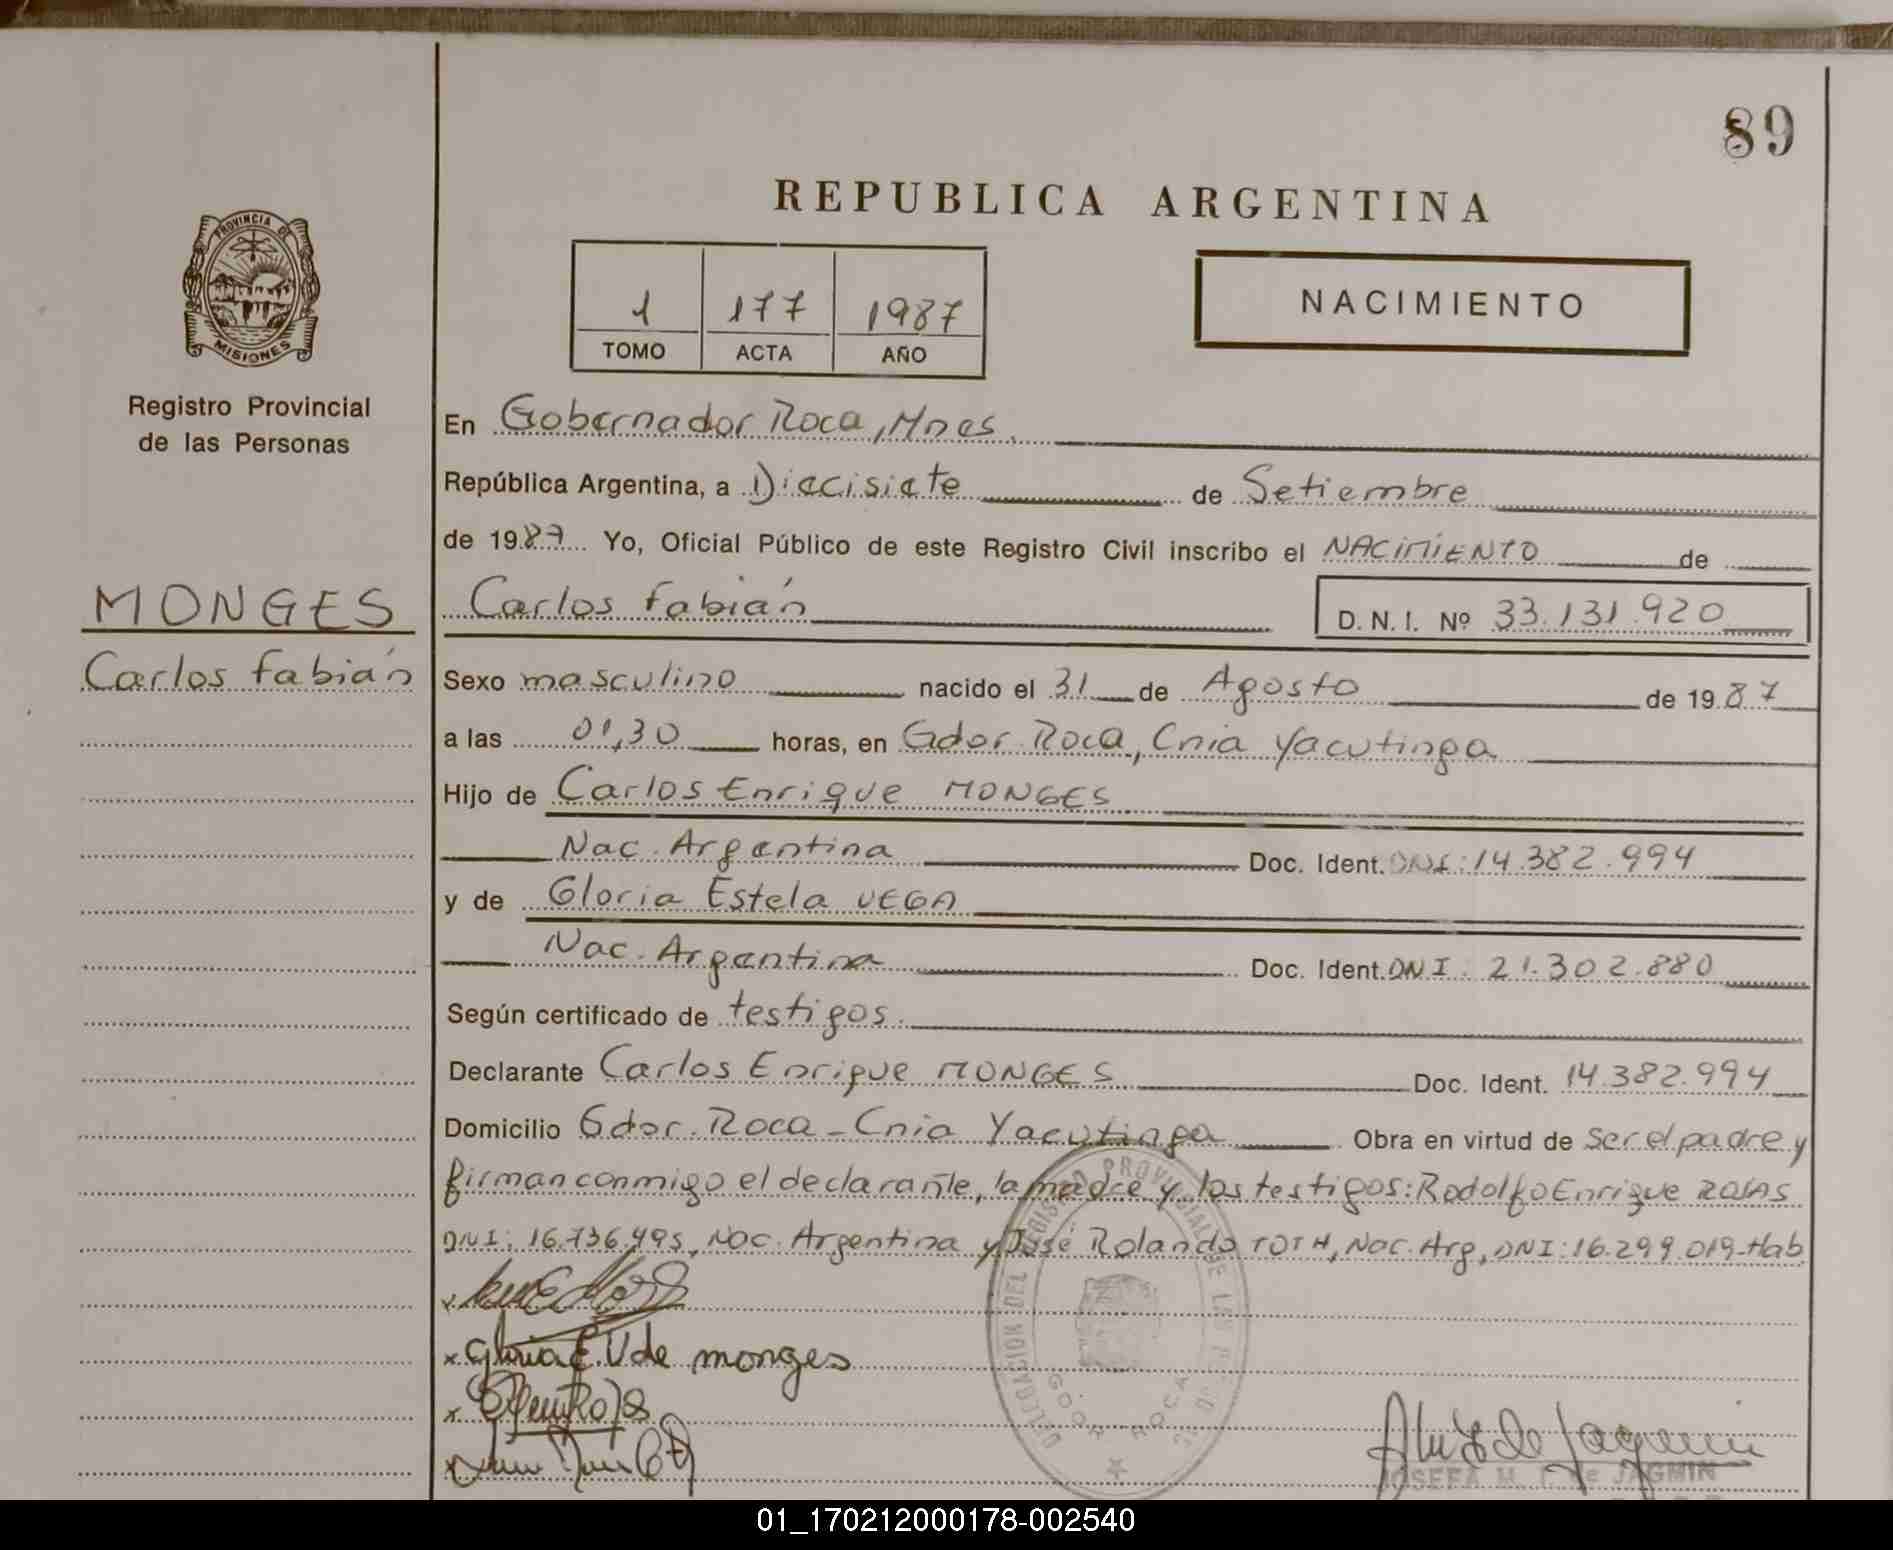 89
REPUBLICA ARGENTINA
PROVINCIA DE
MISIONES
Registro Provincial
de las Personas
1 177 1987
TOMO ACTA AÑO
NACIMIENTO
En Gobernador Roca, Mnes.
República Argentina, a Diecisiete de Setiembre
de 1987 Yo, Oficial Público de este Registro Civil inscribo el NACIMIENTO de
MONGES
Carlos Fabián
Carlos Fabián D. N. I. Nº 33.131.920
Sexo masculino nacido el 31 de Agosto de 1987
a las 01,30 horas, en Gdor. Roca, Cnia Yacutinga
Hijo de Carlos Enrique MONGES
Nac. Argentina Doc. Ident. DNI: 14.382.994
y de Gloria Estela VEGA
Nac. Argentina Doc. Ident. DNI: 21.302.880
Según certificado de testigos.
Declarante Carlos Enrique MONGES Doc. Ident. 14.382.994
Domicilio Gdor. Roca - Cnia Yacutinga Obra en virtud de ser el padre y
firman conmigo el declarante, la madre y los testigos: Rodolfo Enrique ROJAS
DNI: 16.736.495, Nac. Argentina y José Rolando TOTH, Nac. Arg, DNI: 16.299.019-Hab
x Gloria E. V de monges
DELEGACION DEL REGISTRO PROVINCIAL DE LAS
GDOR ROCA
JOSEFA M. T. de JAGMIN
01_170212000178-002540